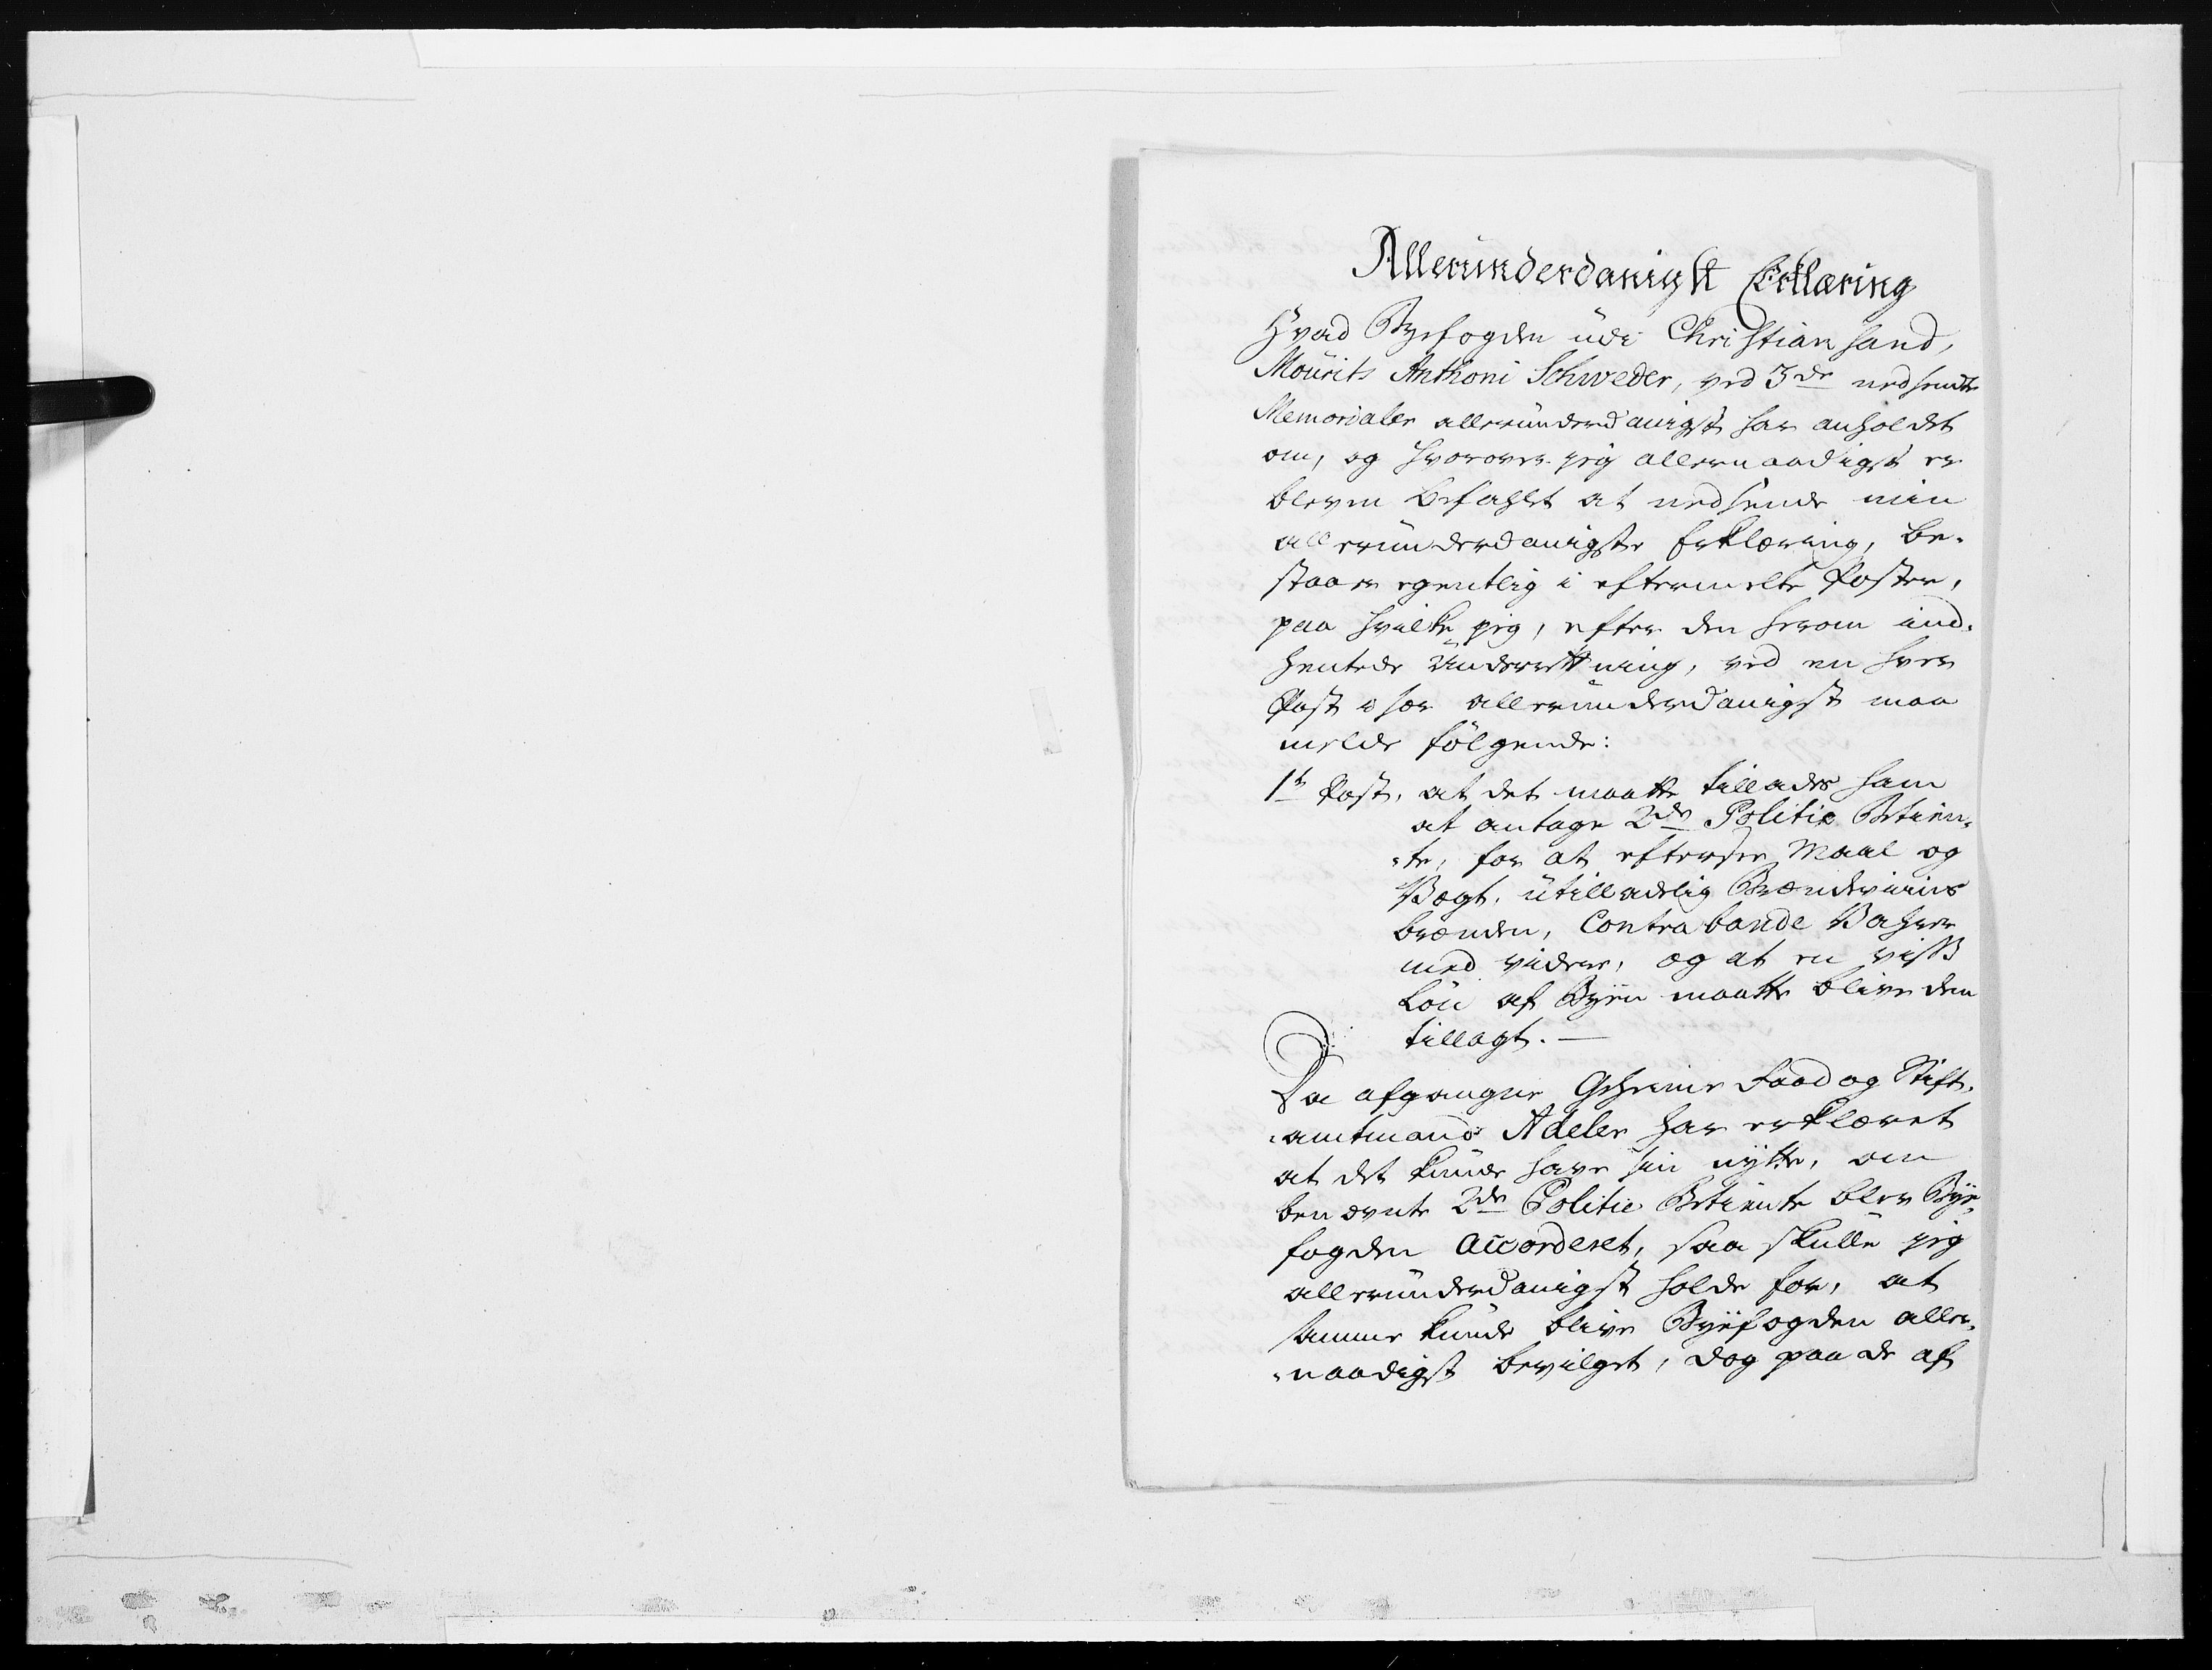 Allerunderdanigst Erklæring
Hvad Byefogden udi Christiansand,
Mourits Anthoni Schweder, ved 3de nedsendte
Memorialer allerunderdanigst har anholdet
om, og hvorover jeg allernaadigst er
bleven befahlet at nedsende min
allerunderdanigste Erklæring, be-
staaer egentlig i eftermelte Poster,
paa hvilke jeg, efter den herom ind-
hentede Underrettning, ved en hver
Post især allerunderdanigst maa
melde følgende:
1te Post, at det maatte tillades ham
at antage 2de Politie Betien-
-te, for at eftersee Maal og
Vægt, utilladelig Brændeviins
brænden, Contrabande Vahrer
med videre, og at en viss
Løn af Byen maatte blive dem
tillagt. —
Da afgangne Geheime Raad og Stift-
-amtmand Adeler har erklæret
at det kunde have sin nytte, om
benævnte 2de Politie Betiente blev Bye-
fogden accorderet, saa skulle jeg
allerunderdanigst holde for, at
samme kunde blive Byefogden aller-
-naadigst bevilget, dog paa de af